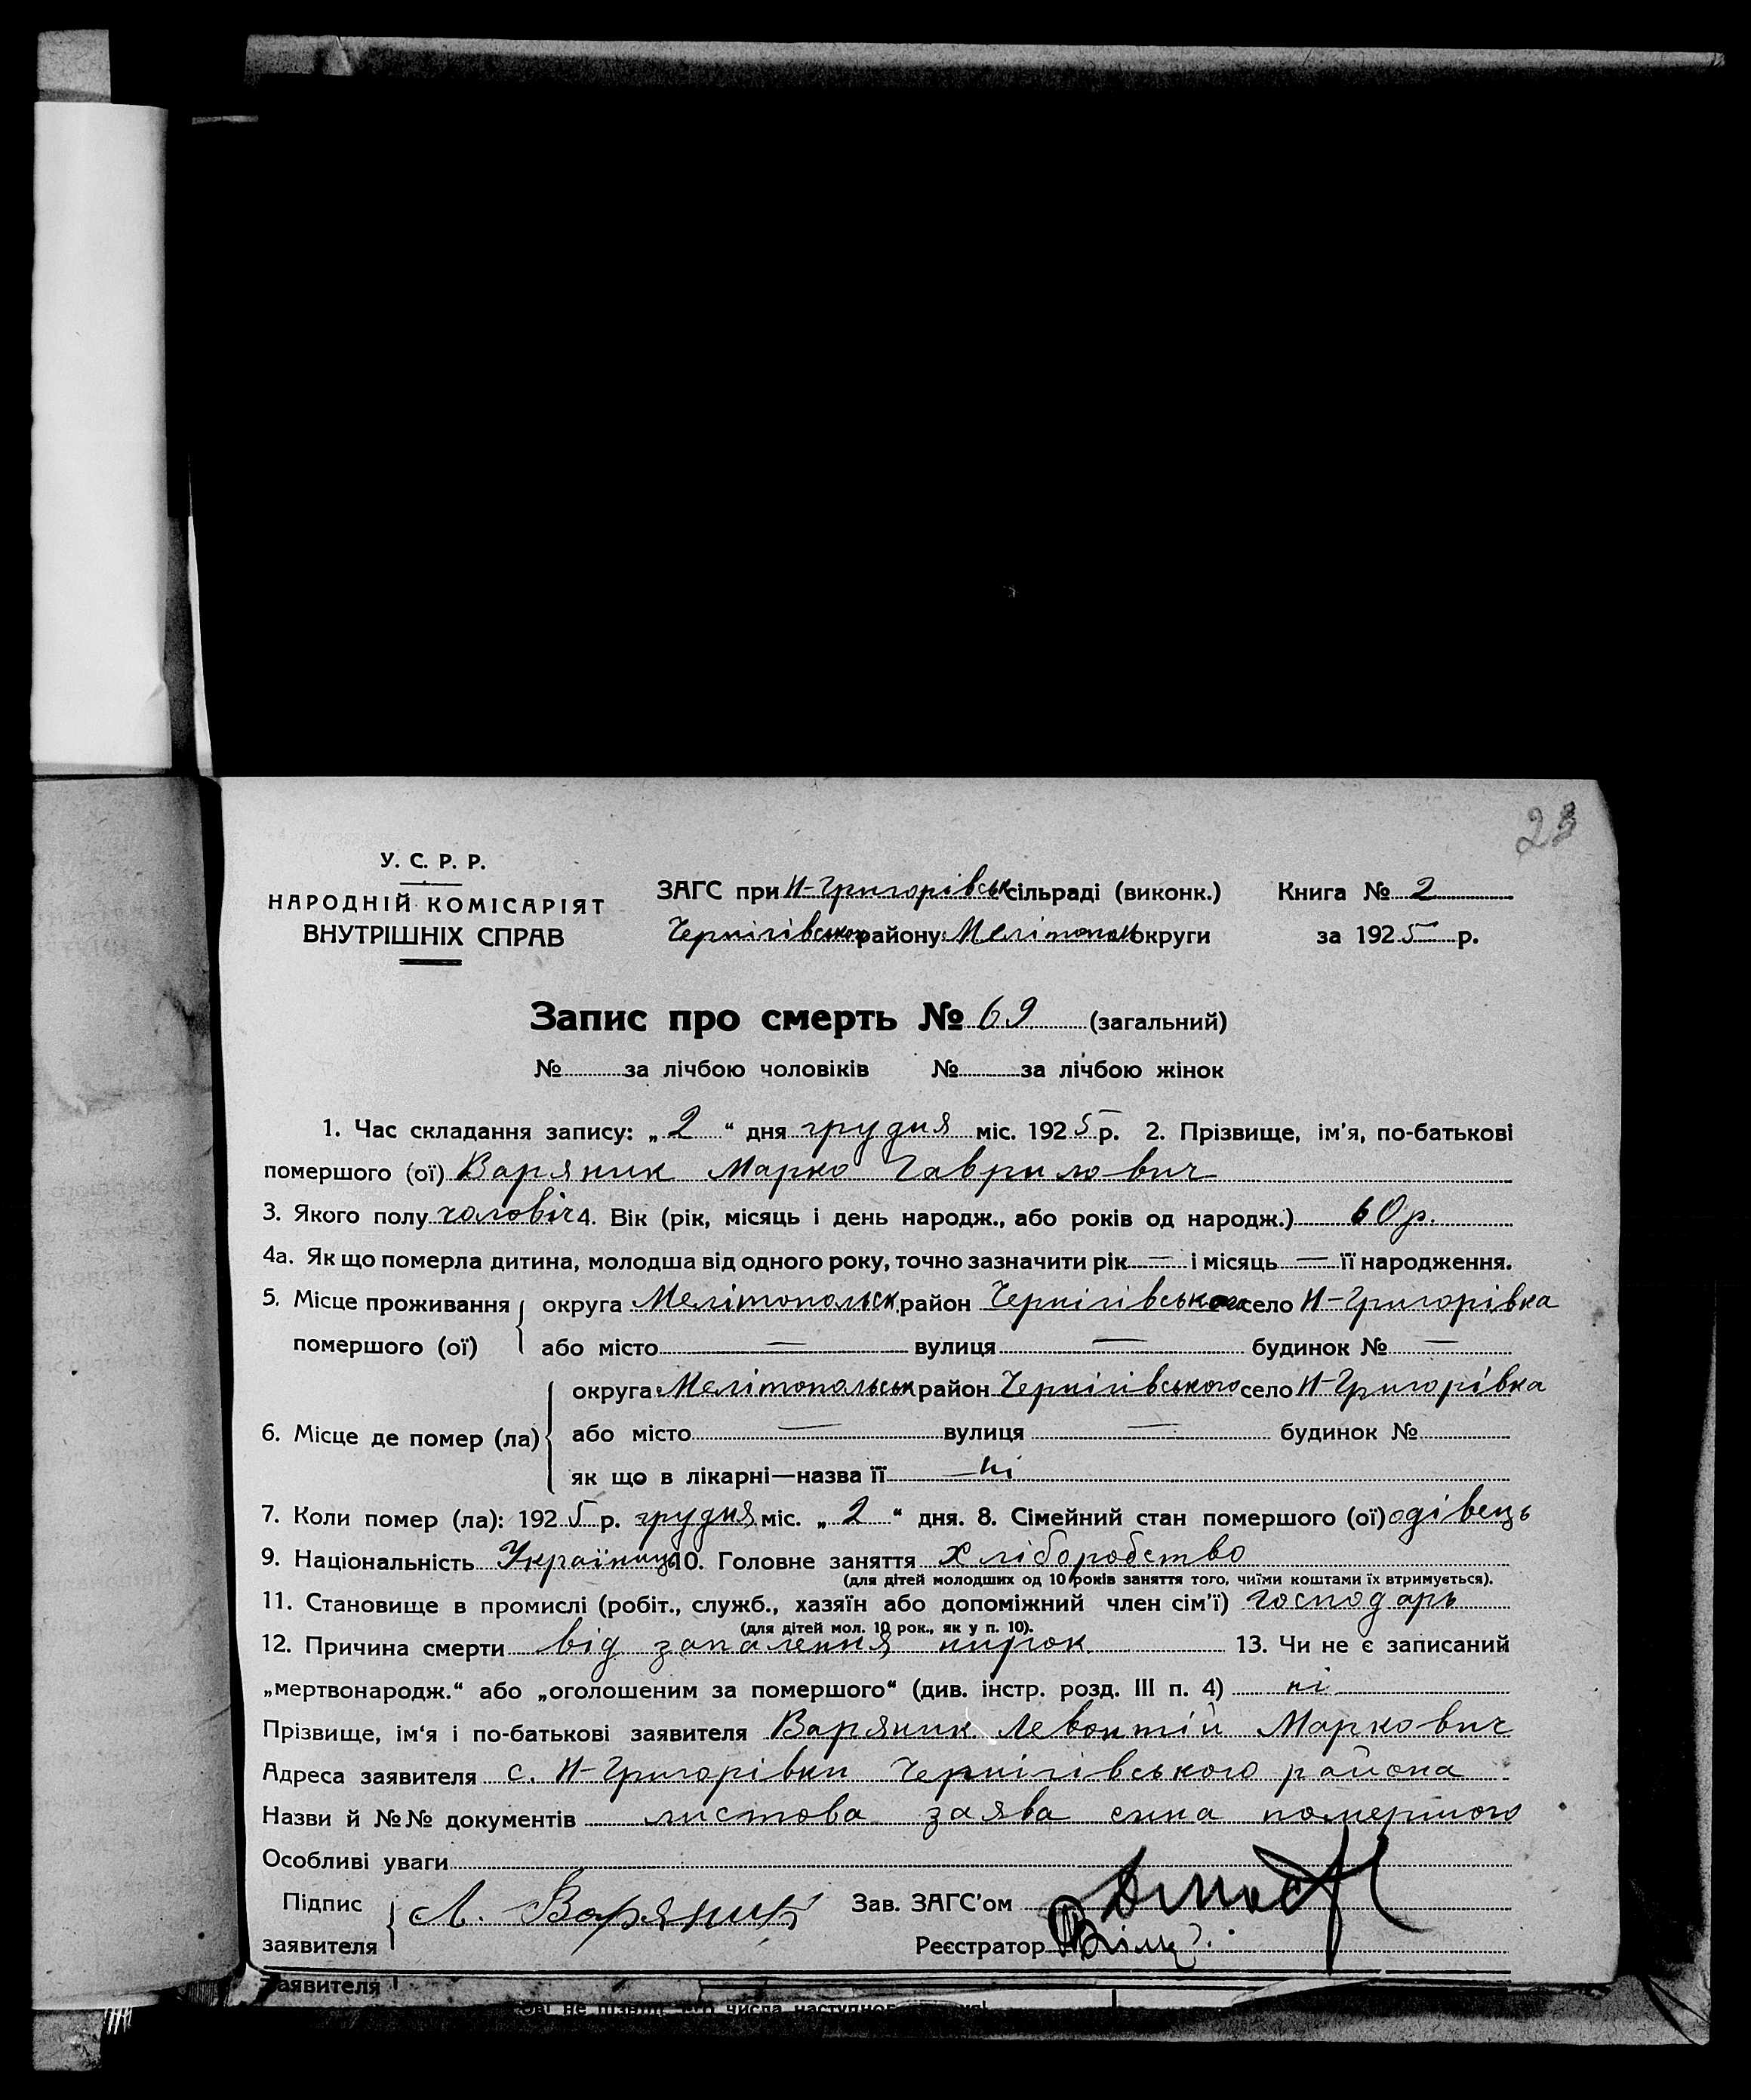 23
У. С. Р. Р.
НАРОДНІЙ КОМІСАРІЯТ
ВНУТРІШНІХ СПРАВ
ЗАГС при Н-Григорівськ сільраді (виконк.) Книга № 2
Чернігівського району Мелітопольс округи за 1925 р.
Запис про смерть № 69 (загальний)
№ за лічбою чоловіків № за лічбою жінок
1. Час складання запису: „2“ дня грудня міс. 1925 р. 2. Прізвище, ім'я, по-батькові
помершого (ої) Варяник Марко Гаврилович
3. Якого полу чоловіч 4. Вік (рік, місяць і день народж., або років од народж.) 60 р.
4а. Як що померла дитина, молодша від одного року, точно зазначити рік — і місяць — її народження.
5. Місце проживання округа Мелітопольськ район Чернігівського село Н-Григорівка
помершого (ої) або місто — вулиця — будинок № —
округа Мелітопольськ район Чернігівського село Н-Григорівка
6. Місце де помер (ла) або місто — вулиця — будинок №
як що в лікарні—назва її — ні
7. Коли помер (ла): 1925 р. грудня міс. „2“ дня. 8. Сімейний стан помершого (ої) одівець
9. Національність Українець 10. Головне заняття Хліборобство
(для дітей молодших од 10 років заняття того, чиїми коштами їх втримується).
11. Становище в промислі (робіт., служб., хазяїн або допоміжний член сім'ї) господарь
(для дітей мол. 10 рок., як у п. 10).
12. Причина смерти від запалення нирок 13. Чи не є записаний
„мертвонародж.“ або „оголошеним за помершого“ (див. інстр. розд. III п. 4) ні
Прізвище, ім'я і по-батькові заявителя Варяник Левонтій Маркович
Адреса заявителя с. Н-Григорівки Чернігівського района
Назви й №№ документів листова заява сина помершого
Особливі уваги
Підпис Л. Варяник Зав. ЗАГС'ом
заявителя Реєстратор
заявителя